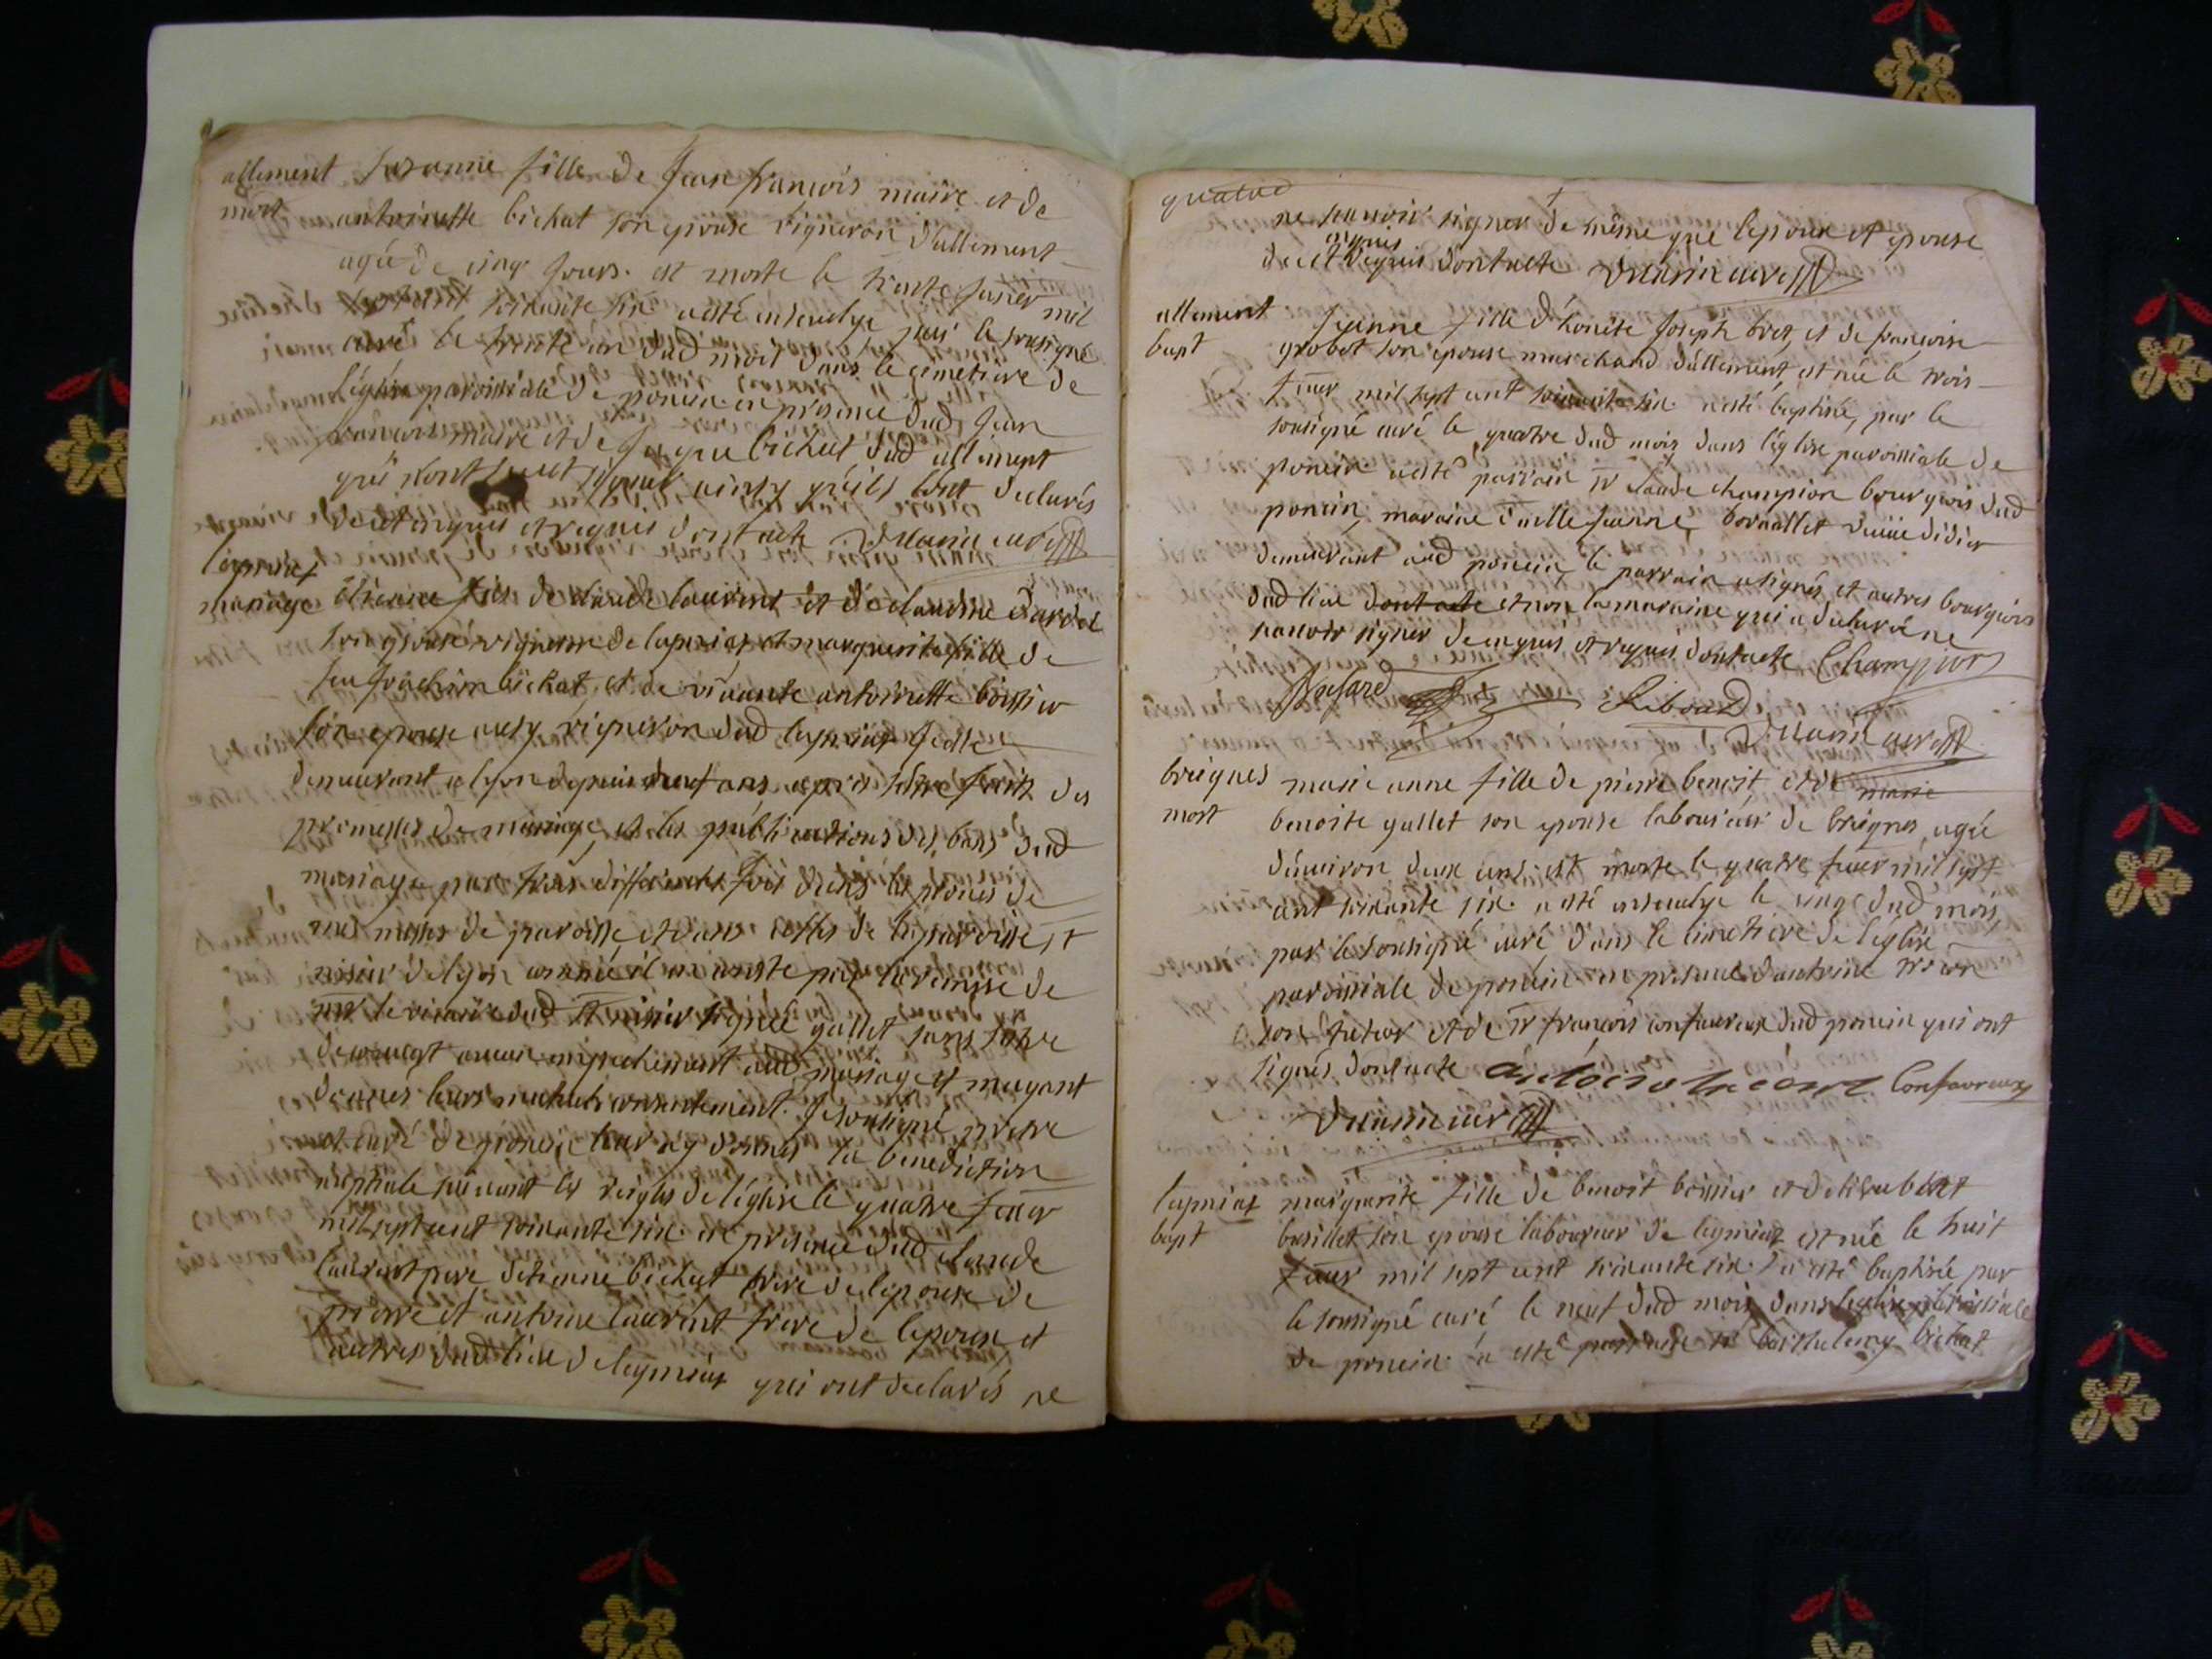 allement Susanne fille de Jean françois maire et de
mort antoinette bichat son epouse vigneron d'allement
agée de cinq jours est morte le trente janvier mil
sept cent soixante six a esté ensevelye par le sousigné
curé le trente un dud mois dans le cimetiere de
l'eglise paroissiale de poncin en presence dud jean
françois maire et de bichat dud allement
qui n'ont sceut signer ainsy qu'ils l'ont declarés
de ce enquis et requis dont acte curé
leymiat
mariage étienne fils de claude laurent et de claudine
son epouse vigneron de leymiat et marguerite fille de
feu joachim bichat et de vivante antoinette boissier
son epouse ausy vigneron dud leymiat icelle
demeurant a lyon depuis neuf ans apres s'être faits des
promesses de mariage et les publications des bans dud
mariage par trois differentes fois dans les prones de
nos messes de paroisse et dans celles de la paroisse st
nisier de lyon comme il en conste par la remise de
mr le vicaire dud st nisier signée gallet sans s'être
decouvert aucun empechement aud mariage et moyant
d'eux leurs mutuels consentement. Je sousigné pretre
et curé de poncin leur ay donnés la benediction
nuptiale suivant les reigles de l'église le quatre fevrier
mil sept cent soixante six en presence dud claude
laurent pere d'etienne bichat frere de l'epouse de
pierre et antoine laurent frere de lepoux et
autres dud lieu de leymiat qui ont declarés ne
quatre
ne scavoir signer de même que lepoux et epouse
enquis
de ce et requis dont acte curé
allement Jeanne fille d'honête Joseph bret et de françoise
bapt grobot son epouse marchand d'allement est née le trois
fevrier mil sept cent soixante six a esté baptisée par le
sousigné curé le quatre dud mois dans l'eglise paroissiale de
poncin a esté parrain sr claude champion bourgeois dud
poncin maraine d'elle jeanne bornallet veuve didier
demeurant aud poncin le parrain a signés et autres bourgeois
dud lieu dont acte et non la maraine qui a declarée ne
scavoir signer de enquis et requis dont acte Champion
Riboud
curé
breignes marie anne fille de pierre benoit et de marie
mort benoite gallet son epouse laboureur de breignes agée
d'environ deux ans est morte le quatre fevrier mil sept
cent soixante six a esté ensevelye le cinq dud mois
par le sousigné curé dans le cimetiere de l'eglise
paroissiale de poncin en presence d'antoine
son tuteur et de sr françois confavreux dud poncin qui ont
signés dont acte antoine Confavreux
curé
leymiat marguerite fille de benoit boissier et d'elisabeth
bapt basillet son epouse laboureur de leymiat est née le huit
fevrier mil sept cent soixante six a esté baptisée par
le sousigné curé le neuf dud mois dans l'eglise paroissiale
de poncin a esté parrain sr barthelemy bichat